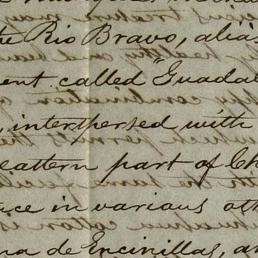 the Rio Bravo, alias
ent called "Guadal
, interspersed with
eastern part of Ch
ce in various oth
na de Encinillas, an